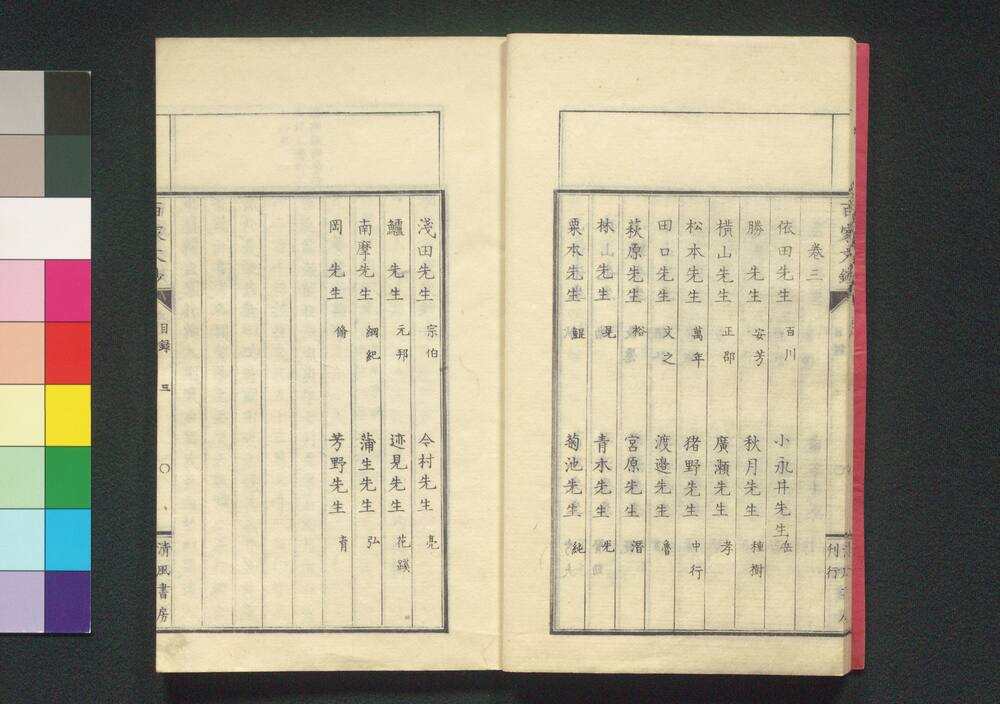 卷三
依田先生 百川
小永井先生 岳
勝 先生 安芳
秋月先生 種樹
横山先生 正邵
廣瀬先生 孝
松本先生 萬年
猪野先生 中行
田口先生 文之
渡邉先生 魯
萩原先生 裕
宮原先生 潛
林 先生 晃
青木先生
栗本先生 鯤
菊池先生 純
淺田先生 宗伯
今村先生 亮
鱸 先生 元邦
迹見先生 花蹊
南摩先生 綱紀
蒲生先生 弘
岡 先生 脩
芳野先生 育
目錄 三
清風書房